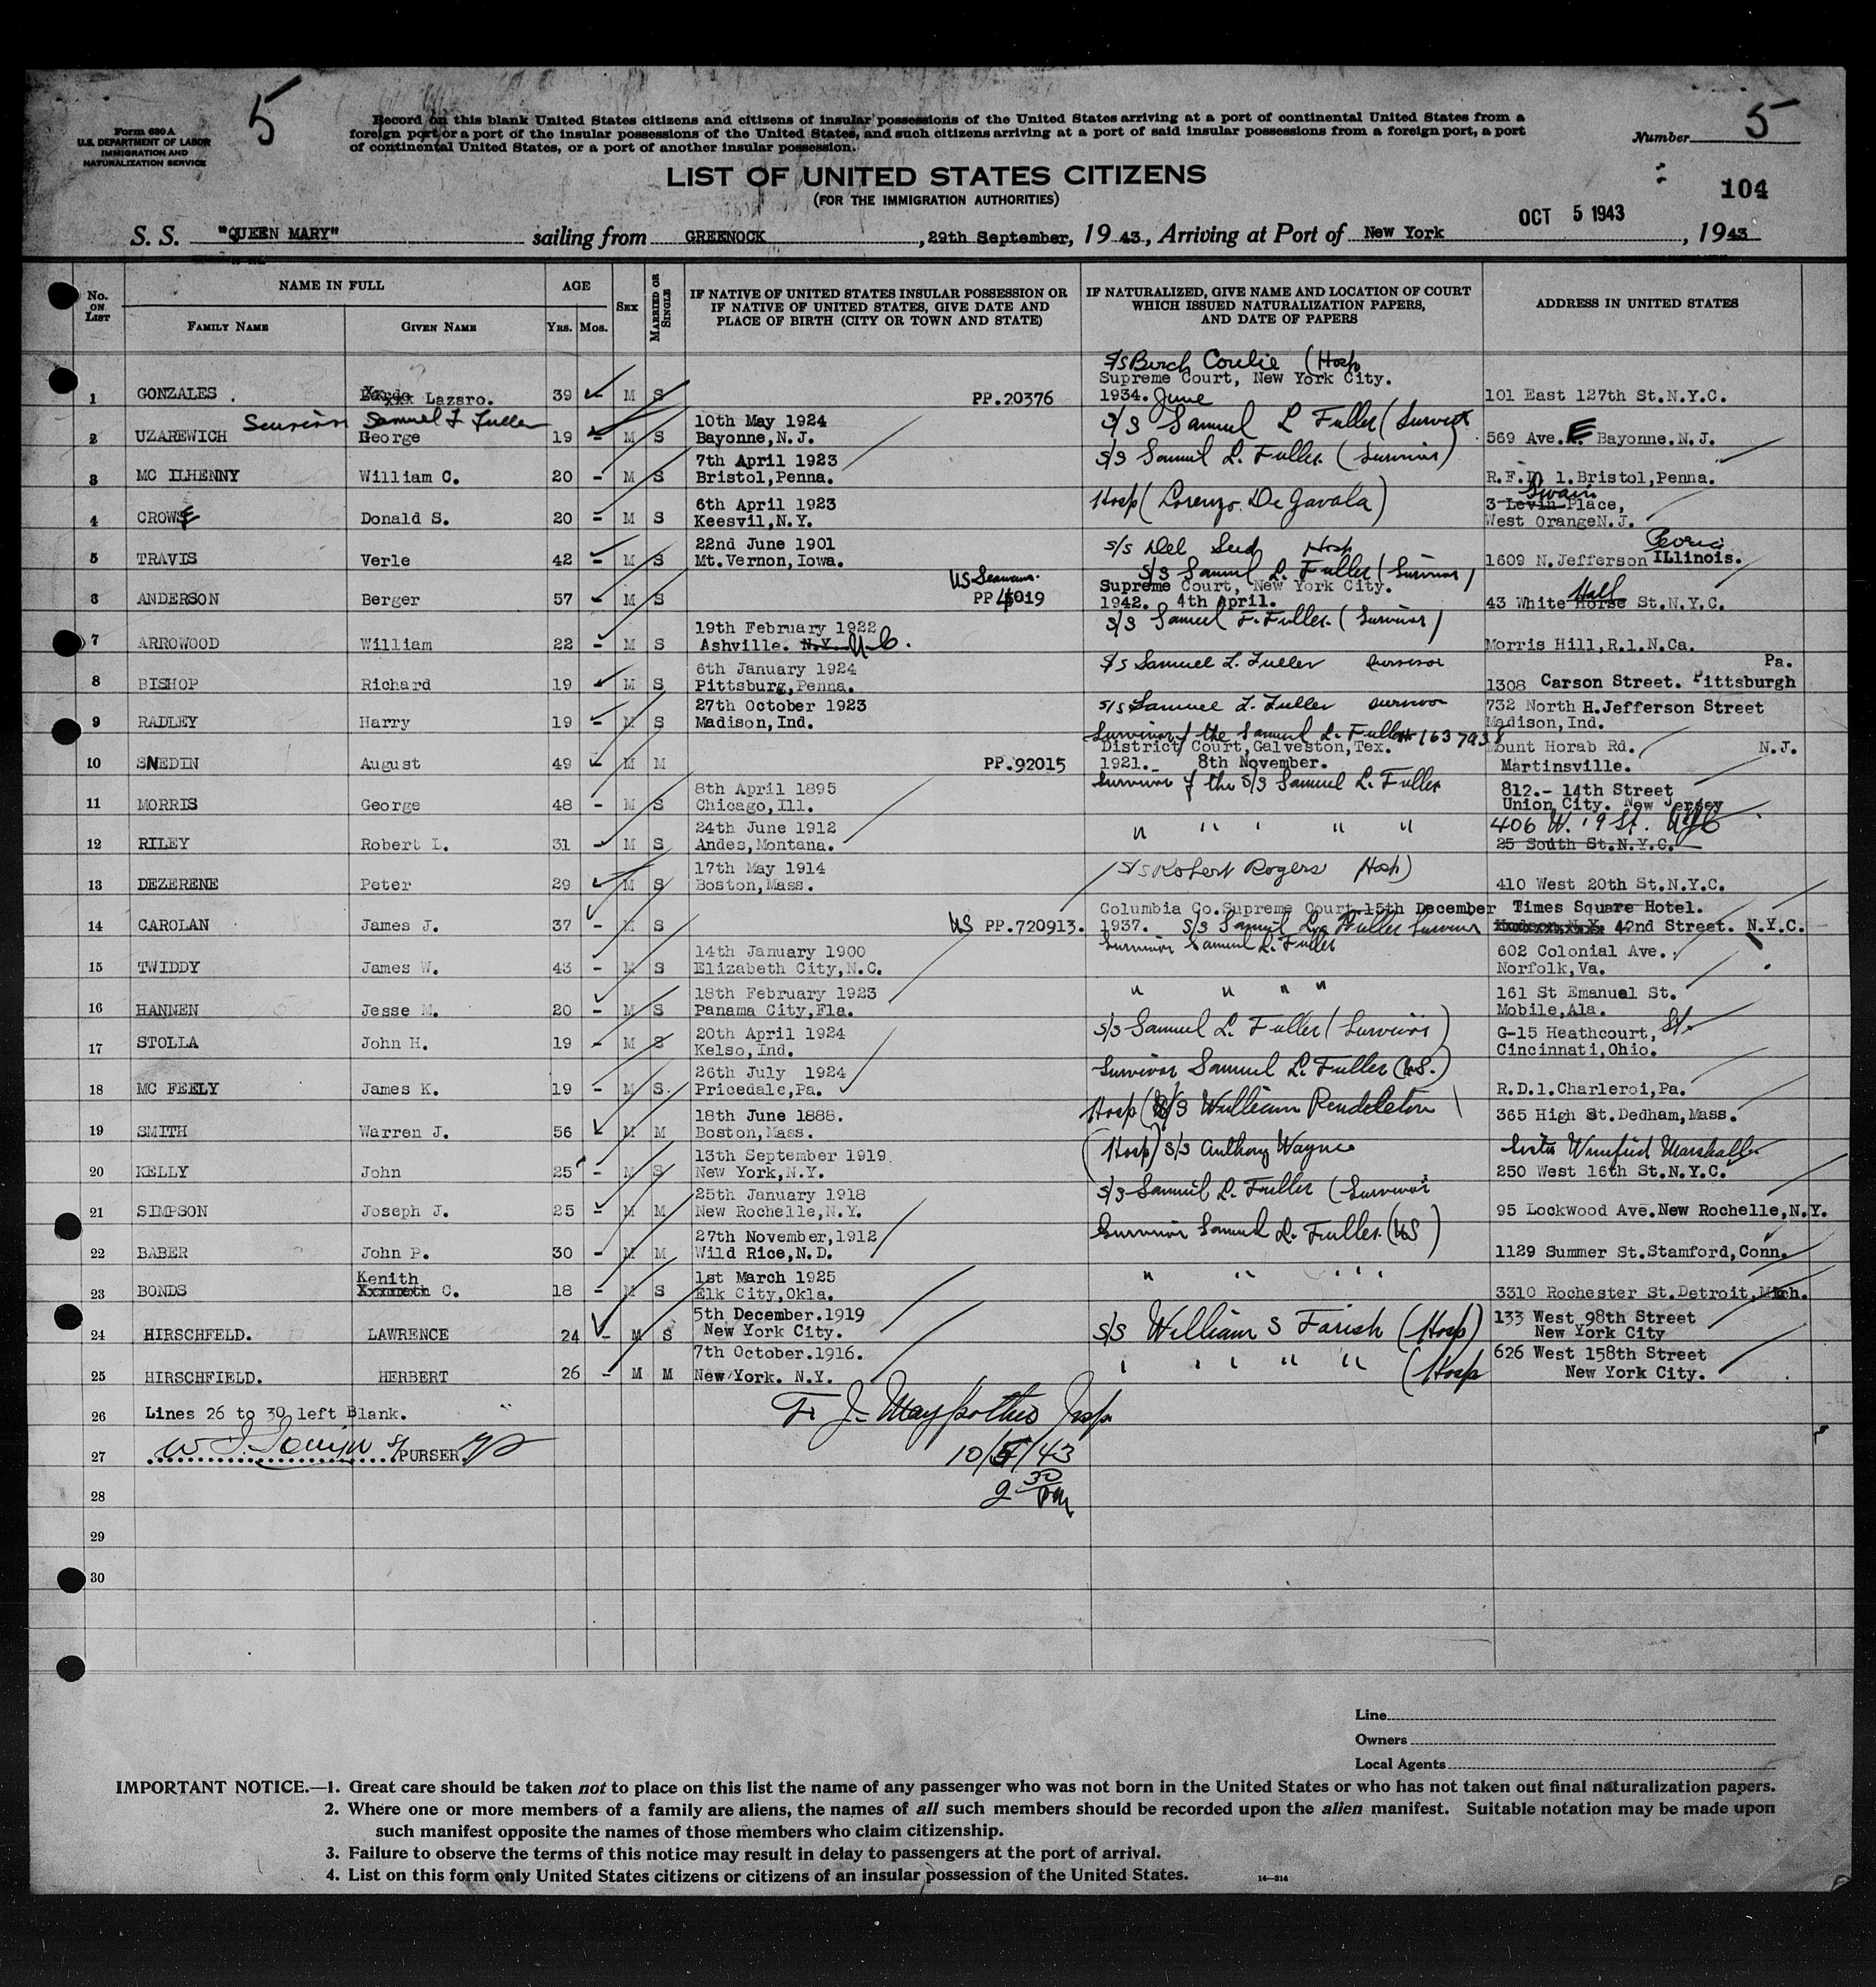 5
Form 630 A
U.S. DEPARTMENT OF LABOR
IMMIGRATION AND
NATURALIZATION SERVICE
Record on this blank United States citizens and citizens of insular possessions of the United States arriving at a port of continental United States from a
foreign port or a port of the insular possessions of the United States, and such citizens arriving at a port of said insular possessions from a foreign port, a port
of continental United States, or a port of another insular possession.
Number 5
LIST OF UNITED STATES CITIZENS
(FOR THE IMMIGRATION AUTHORITIES)
104
OCT 5 1943
S. S. "QUEEN MARY" sailing from GREENOCK, 29th September, 1943, Arriving at Port of New York, 1943
No. ON LIST
NAME IN FULL
FAMILY NAME
GIVEN NAME
AGE
YRS. MOS.
SEX
MARRIED OR SINGLE
IF NATIVE OF UNITED STATES INSULAR POSSESSION OR
IF NATIVE OF UNITED STATES, GIVE DATE AND
PLACE OF BIRTH (CITY OR TOWN AND STATE)
IF NATURALIZED, GIVE NAME AND LOCATION OF COURT
WHICH ISSUED NATURALIZATION PAPERS,
AND DATE OF PAPERS
ADDRESS IN UNITED STATES
S/S Birch (Hosp
Supreme Court, New York City.
1 GONZALES . Lazaro. 39 M S PP.20376 1934. June 101 East 127th St.N.Y.C.
Samuel L Fuller
10th May 1924 S/S Samuel L Fuller (
2 UZAREWICH George 19 - M S Bayonne,N.J. 569 Ave. E Bayonne.N.J.
7th April 1923 S/S Samuel L. Fuller (Survivor)
3 MC ILHENNY William C. 20 - M S Bristol,Penna. R.F.D 1.Bristol,Penna.
6th April 1923 Hosp (Lorenzo De Zavala) Swain
4 CROWE Donald S. 20 - M S Keesvil,N.Y. 3 Levin Place,
West OrangeN.J.
22nd June 1901 S/S Hosp Peoria
5 TRAVIS Verle 42 - M S Mt.Vernon,Iowa. 1609 N.Jefferson ILlinois.
S/S Samuel L. Fuller (Survivor)
US Seamans. Supreme Court, New York City. Hall
6 ANDERSON Berger 57 - M S PP 1942. 4th April. 43 White Horse St.N.Y.C.
19th February 1922 S/S Samuel L. Fuller. (Survivor)
7 ARROWOOD William 22 - M S Ashville. N.Y. N.C. Morris Hill,R.1.N.Ca.
6th January 1924 S/S Samuel L. Fuller survivor Pa.
8 BISHOP Richard 19 - M S Pittsburg,Penna. 1308 Carson Street. Pittsburgh
27th October 1923 S/S Samuel L. Fuller survivor 732 North H.Jefferson Street
9 RADLEY Harry 19 - M S Madison,Ind. Madison,Ind.
Survivor of the Samuel L. Fuller
District Court,Galveston,Tex. Mount Horab Rd. N.J.
10 SNEDIN August 49 - M M PP.92015 1921._ 8th November. Martinsville.
8th April 1895 Survivor of the S/S Samuel L. Fuller 812.- 14th Street
11 MORRIS George 48 - M S Chicago,Ill. Union City. New Jersey
24th June 1912 " " " " " 406 W. 19 St. NYC
12 RILEY Robert L. 31 - M S Andes,Montana. 25 South St.N.Y.C.
17th May 1914 S/S Robert Rogers Hosp)
13 DEZERENE Peter 29 - M S Boston,Mass. 410 West 20th St.N.Y.C.
Columbia Co.Supreme Court.15th December Times Square Hotel.
14 CAROLAN James J. 37 - M S US PP.720913. 1937. S/S Samuel L. Fuller Survivor 42nd Street. N.Y.C.
14th January 1900 Survivor Samuel L. Fuller 602 Colonial Ave.
15 TWIDDY James W. 43 - M S Elizabeth City,N.C. Norfolk,Va.
18th February 1923 " " " " 161 St Emanuel St.
16 HANNEN Jesse M. 20 - M S Panama City,Fla. Mobile,Ala.
20th April 1924 S/S Samuel L. Fuller (Survivor) G-15 Heathcourt, St.
17 STOLLA John H. 19 - M S Kelso,Ind. Cincinnati,Ohio.
26th July 1924 Survivor Samuel L. Fuller (US.)
18 MC FEELY James K. 19 - M S. Pricedale,Pa. R.D.1.Charleroi,Pa.
18th June 1888. Hosp (S/S William Pendleton 365 High St.Dedham,Mass.
19 SMITH Warren J. 56 - M M Boston,Mass.
13th September 1919. (Hosp) S/S Anthony Wayne Winifred Marshall
20 KELLY John 25 - M S New York,N.Y. 250 West 16th St.N.Y.C.
25th January 1918 S/S Samuel L. Fuller (Survivor
21 SIMPSON Joseph J. 25 - M M New Rochelle,N.Y. 95 Lockwood Ave.New Rochelle,N.Y.
27th November,1912 Survivor Samuel L. Fuller. (US)
22 BABER John P. 30 - M M Wild Rice,N.D. 1129 Summer St.Stamford,Conn.
Kenith 1st March 1925 " " " " "
23 BONDS C. 18 - M S Elk City,Okla. 3310 Rochester St.Detroit,Mich.
5th December.1919 S/S William S Farish (Hosp) 133 West 98th Street
24 HIRSCHFELD. LAWRENCE 24 - M S New York City. New York City
7th October.1916. " " " " " (Hosp 626 West 158th Street
25 HIRSCHFIELD. HERBERT 26 - M M New York. N.Y. New York City.
26 Lines 26 to 30 left Blank.
27 PURSER. 10/5/43
28 2 30 PM
29
30
Line
Owners
Local Agents
IMPORTANT NOTICE.—1. Great care should be taken not to place on this list the name of any passenger who was not born in the United States or who has not taken out final naturalization papers.
2. Where one or more members of a family are aliens, the names of all such members should be recorded upon the alien manifest. Suitable notation may be made upon
such manifest opposite the names of those members who claim citizenship.
3. Failure to observe the terms of this notice may result in delay to passengers at the port of arrival.
4. List on this form only United States citizens or citizens of an insular possession of the United States.
14—214